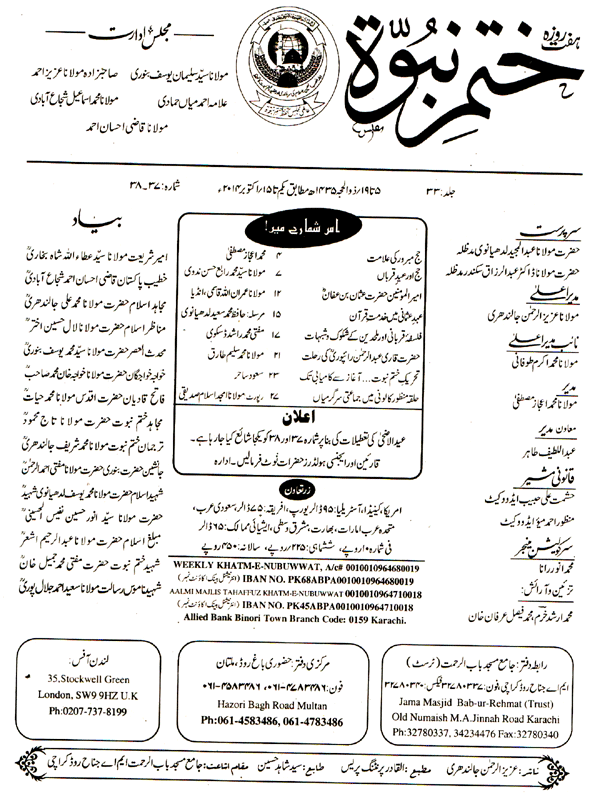 ہفت روزہ
ختم نبوۃ
مجلس ادارت
مولانا سید سلیمان یوسف بنوری صاحبزادہ مولانا عزیز احمد
علامہ احمد میاں حمادی مولانا محمد اسماعیل شجاع آبادی
مولانا قاضی احسان احمد
جلد: ۳۳ ۵ تا ۱۹/ذوالحجہ ۱۴۳۵ھ مطابق یکم تا ۱۵/اکتوبر ۲۰۱۴ء شمارہ: ۳۷۔۳۸
سرپرست
حضرت مولانا عبدالمجید لدھیانوی مدظلہ
حضرت مولانا ڈاکٹر عبدالرزاق سکندر مدظلہ
مدیر اعلیٰ
مولانا عزیز الرحمٰن جالندھری
نائب مدیر اعلیٰ
مولانا محمد اکرم طوفانی
مدیر
مولانا محمد اعجاز مصطفیٰ
معاون مدیر
عبداللطیف طاہر
قانونی مشیر
حشمت علی حبیب ایڈووکیٹ
منظور احمد میؤ ایڈووکیٹ
سرکولیشن منیجر
محمد انور رانا
تزئین و آرائش:
محمد ارشد خرم، محمد فیصل عرفان خان
اس شمارے میں!
حج مبرور کی علامت ۴ محمد اعجاز مصطفیٰ
حج اور عید قرباں ۷ مولانا سید محمد رابع حسن ندوی
امیر المؤمنین حضرت عثمان بن عفانؓ ۱۲ مولانا عمران اللہ قاسمی، انڈیا
عہد عثمانی میں خدمت قرآن ۱۵ مرسلہ: حافظ محمد سعید لدھیانوی
فلسفۂ قربانی اور ملحدین کے شکوک و شبہات ۱۷ مفتی محمد راشد ڈسکوی
حضرت قاری عبدالرحمٰن رائپوری کی رحلت ۲۱ مولانا محمد سلیم طارق
تحریک ختم نبوت... آغاز سے کامیابی تک ۲۳ سعود ساحر
حلقہ منظور کالونی میں جماعتی سرگرمیاں ۲۷ رپورٹ مولانا امجد اسلام صدیقی
اعلان
عید الاضحیٰ کی تعطیلات کی بنا پر شمارہ ۳۷ اور ۳۸ کو یکجا شائع کیا جا رہا ہے۔
قارئین اور ایجنسی ہولڈرز حضرات نوٹ فرمالیں۔ ادارہ
زرتعاون
امریکا، کینیڈا، آسٹریلیا: ۹۵ ڈالر یورپ، افریقہ: ۷۵ ڈالر، سعودی عرب،
متحدہ عرب امارات، بھارت، مشرق وسطیٰ، ایشیائی ممالک: ۶۵ ڈالر
فی شمارہ ۱۰ روپے، ششماہی: ۲۲۵ روپے، سالانہ: ۳۵۰ روپے
WEEKLY KHATM-E-NUBUWWAT, A/c# 0010010964680019
IBAN NO. PK68ABPA0010010964680019 (انٹرنیشنل بینک اکاؤنٹ نمبر)
AALMI MAJLIS TAHAFFUZ KHATM-E-NUBUWWAT 0010010964710018
IBAN NO. PK45ABPA0010010964710018 (انٹرنیشنل بینک اکاؤنٹ نمبر)
Allied Bank Binori Town Branch Code: 0159 Karachi.
بیاد
امیر شریعت مولانا سید عطاء اللہ شاہ بخاریؒ
خطیب پاکستان قاضی احسان احمد شجاع آبادیؒ
مجاہد اسلام حضرت مولانا محمد علی جالندھریؒ
مناظر اسلام حضرت مولانا لال حسین اخترؒ
محدث العصر حضرت مولانا سید محمد یوسف بنوریؒ
خواجہ خواجگان حضرت مولانا خواجہ خان محمد صاحبؒ
فاتح قادیان حضرت اقدس مولانا محمد حیاتؒ
مجاہد ختم نبوت حضرت مولانا تاج محمودؒ
ترجمان ختم نبوت حضرت مولانا محمد شریف جالندھریؒ
جانشین حضرت بنوری حضرت مولانا مفتی احمد الرحمٰنؒ
شہید اسلام حضرت مولانا محمد یوسف لدھیانوی شہیدؒ
حضرت مولانا سید انور حسین نفیس الحسینیؒ
مبلغ اسلام حضرت مولانا عبدالرحیم اشعرؒ
شہید ختم نبوت حضرت مفتی محمد جمیل خانؒ
شہید ناموس رسالت مولانا سعید احمد جلال پوریؒ
رابطہ دفتر: جامع مسجد باب الرحمت (ٹرسٹ)
ایم اے جناح روڈ کراچی، فون: ۳۲۷۸۰۳۳۷، فیکس: ۳۲۷۸۰۳۴۰
Jama Masjid Bab-ur-Rehmat (Trust)
Old Numaish M.A.Jinnah Road Karachi
Ph:32780337, 34234476 Fax:32780340
مرکزی دفتر: حضوری باغ روڈ، ملتان
فون: ۰۶۱-۴۷۸۳۴۸۶، ۰۶۱-۴۵۸۳۴۸۶
Hazori Bagh Road Multan
Ph:061-4583486, 061-4783486
لندن آفس:
35, Stockwell Green
London, SW9 9HZ U.K
Ph:0207-737-8199
ناشر: عزیز الرحمٰن جالندھری مطبع: القادر پرنٹنگ پریس طابع: سید شاہد حسین مقام اشاعت: جامع مسجد باب الرحمت ایم اے جناح روڈ کراچی